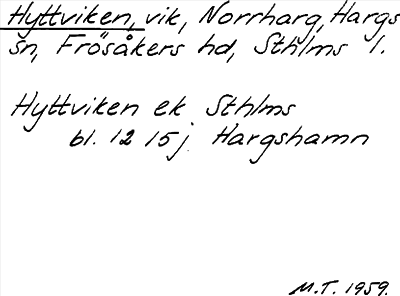 Hyttviken, vik, Norrharg, Hargs
sn, Frösåkers hd, Sthlms l.
Hyttviken ek Sthlms
bl. 12 15j Hargshamn
M.T. 1959.